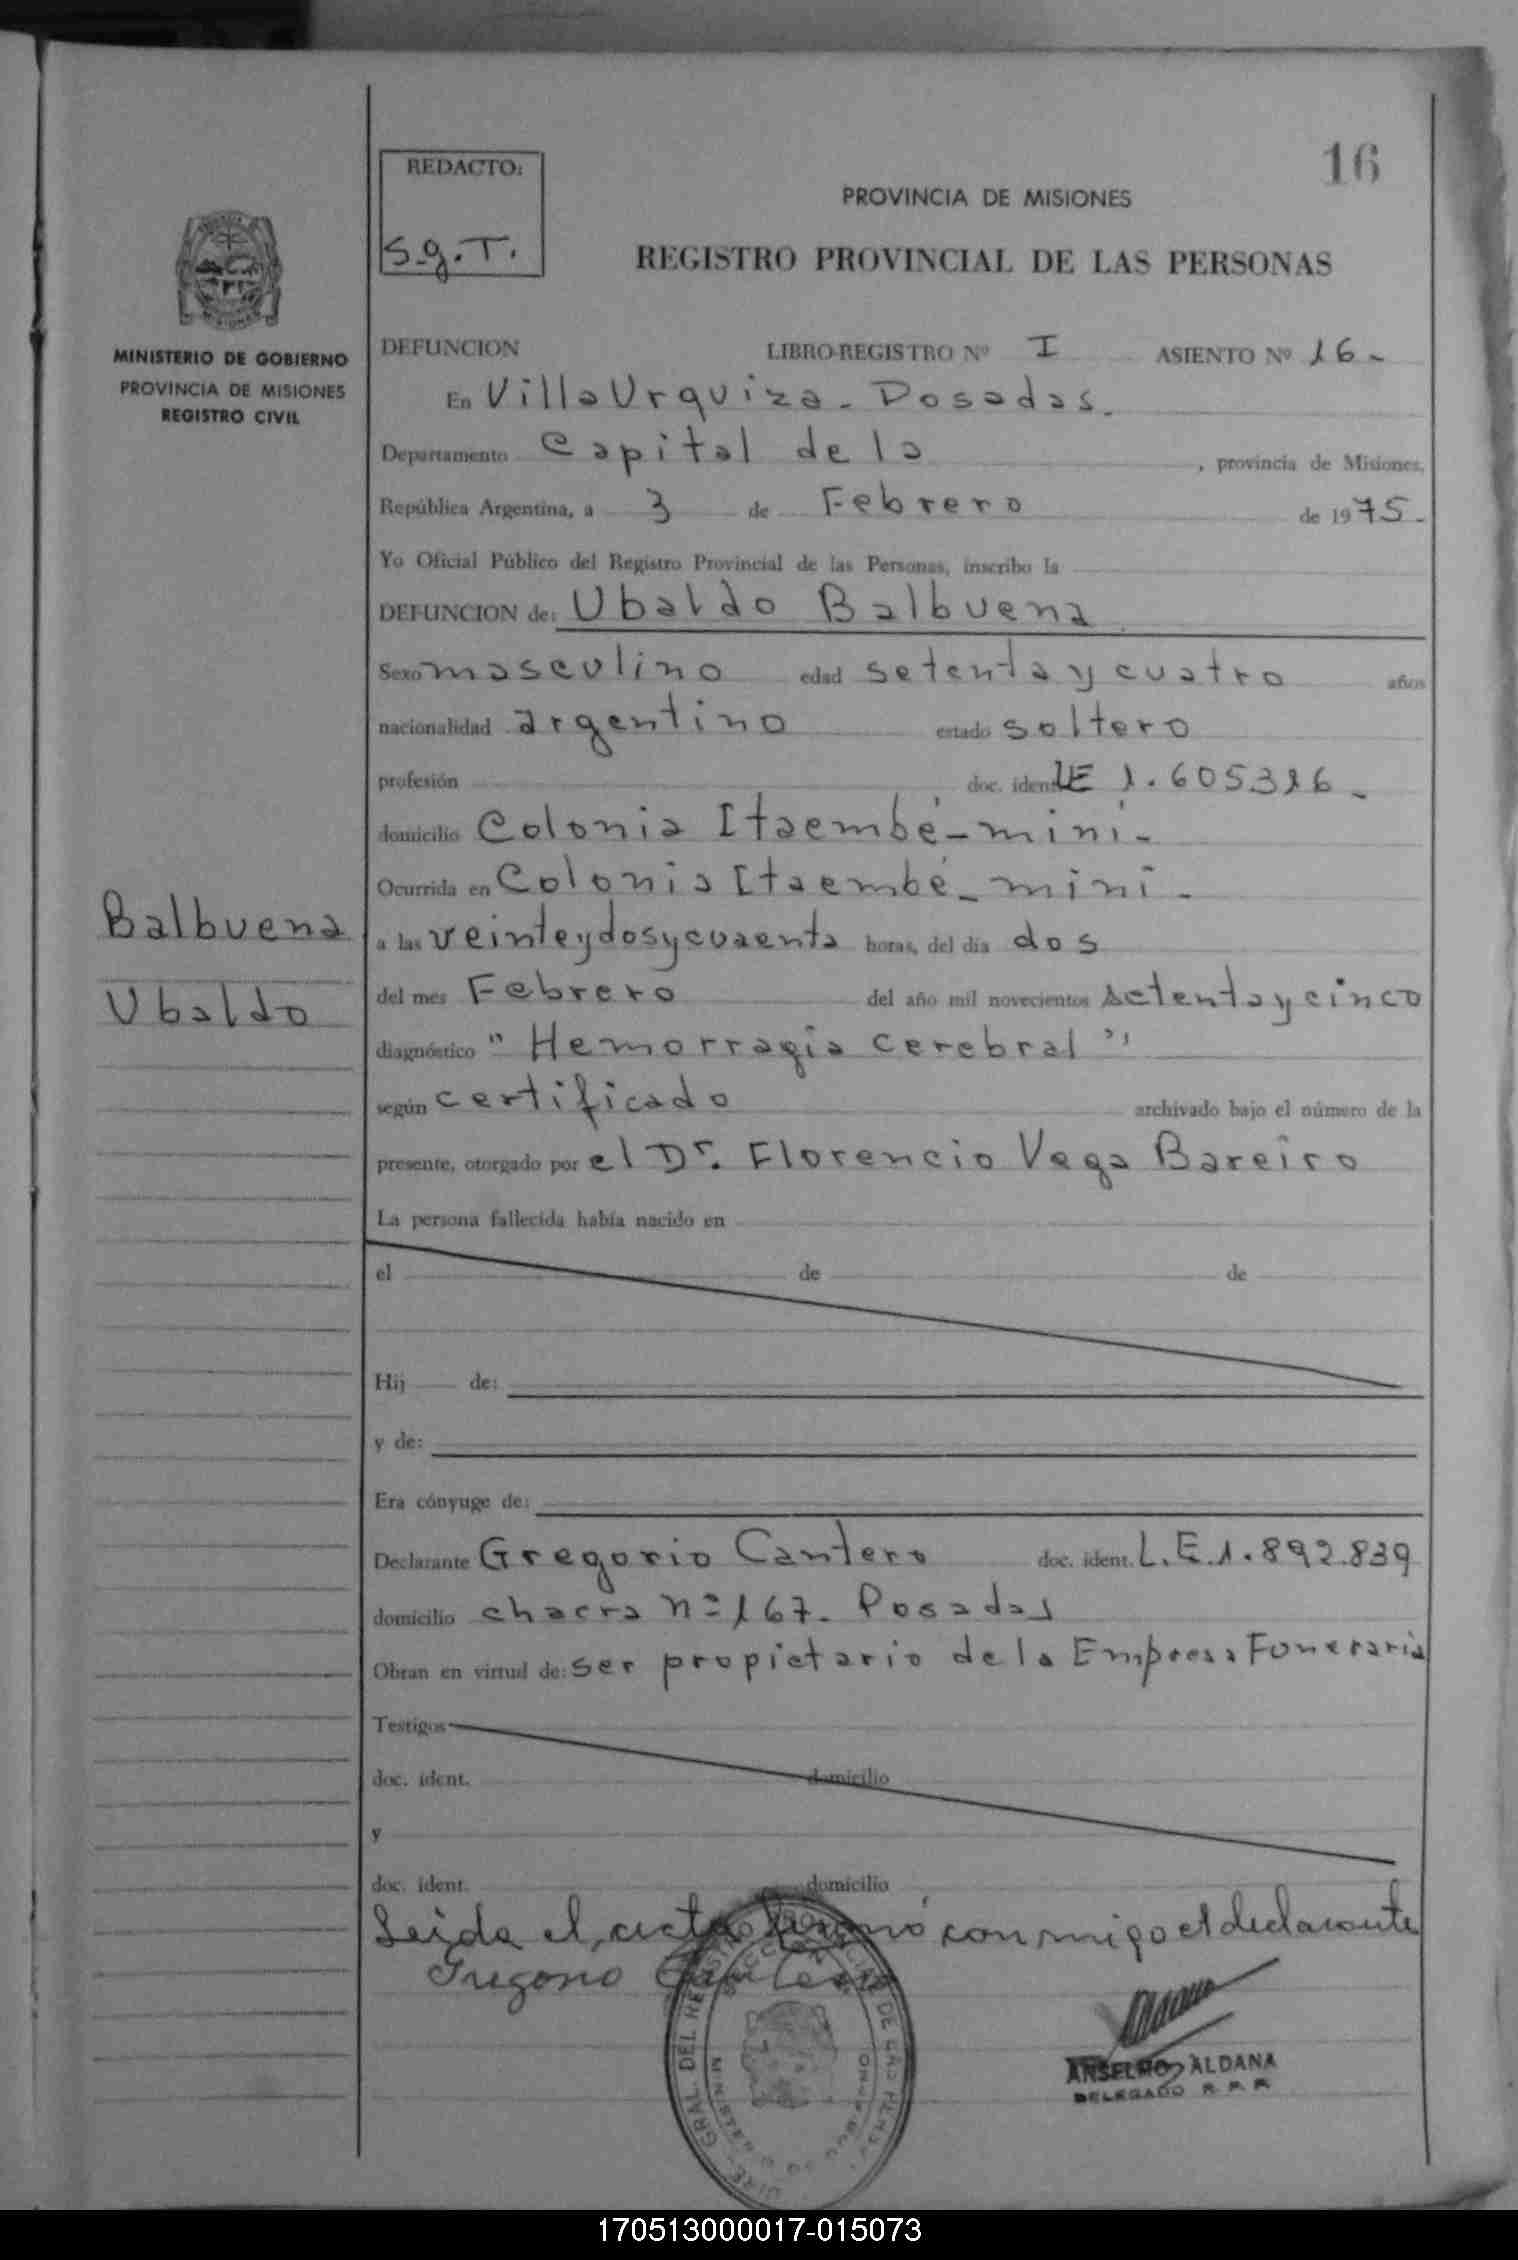 16
REDACTO:
S.g.T.
PROVINCIA DE MISIONES
REGISTRO PROVINCIAL DE LAS PERSONAS
MINISTERIO DE GOBIERNO
PROVINCIA DE MISIONES
REGISTRO CIVIL
DEFUNCION LIBRO-REGISTRO Nº I ASIENTO Nº 16-
En Villa Urquiza - Posadas.
Departamento Capital de la , provincia de Misiones,
República Argentina, a 3 de Febrero de 1975-
Yo Oficial Público del Registro Provincial de las Personas, inscribo la
DEFUNCION de: Ubaldo Balbuena
Sexo masculino edad setenta y cuatro años
nacionalidad argentino estado soltero
profesión doc. ident. LE 1.605316-
domicilio Colonia Itaembé-mini-
Ocurrida en Colonia Itaembé-mini-
a las veinteydosycuaenta horas, del día dos
del mes Febrero del año mil novecientos setentaycinco
diagnóstico "Hemorragia cerebral"
según certificado archivado bajo el número de la
presente, otorgado por el Dr. Florencio Vega Bareiro
La persona fallecida había nacido en
el de de
Hij de:
y de:
Era cónyuge de:
Declarante Gregorio Cantero doc. ident. L.E.1.892.839
domicilio chacra nº167- Posadas
Obran en virtud de: ser propietario de la Empresa Funeraria
Testigos
doc. ident. domicilio
y
doc. ident. domicilio
Leida el acta firmó conmigo el declarante
Gregorio Cantero
Balbuena
Ubaldo
ANSELMO ALDANA
DELEGADO R.P.P.
170513000017-015073